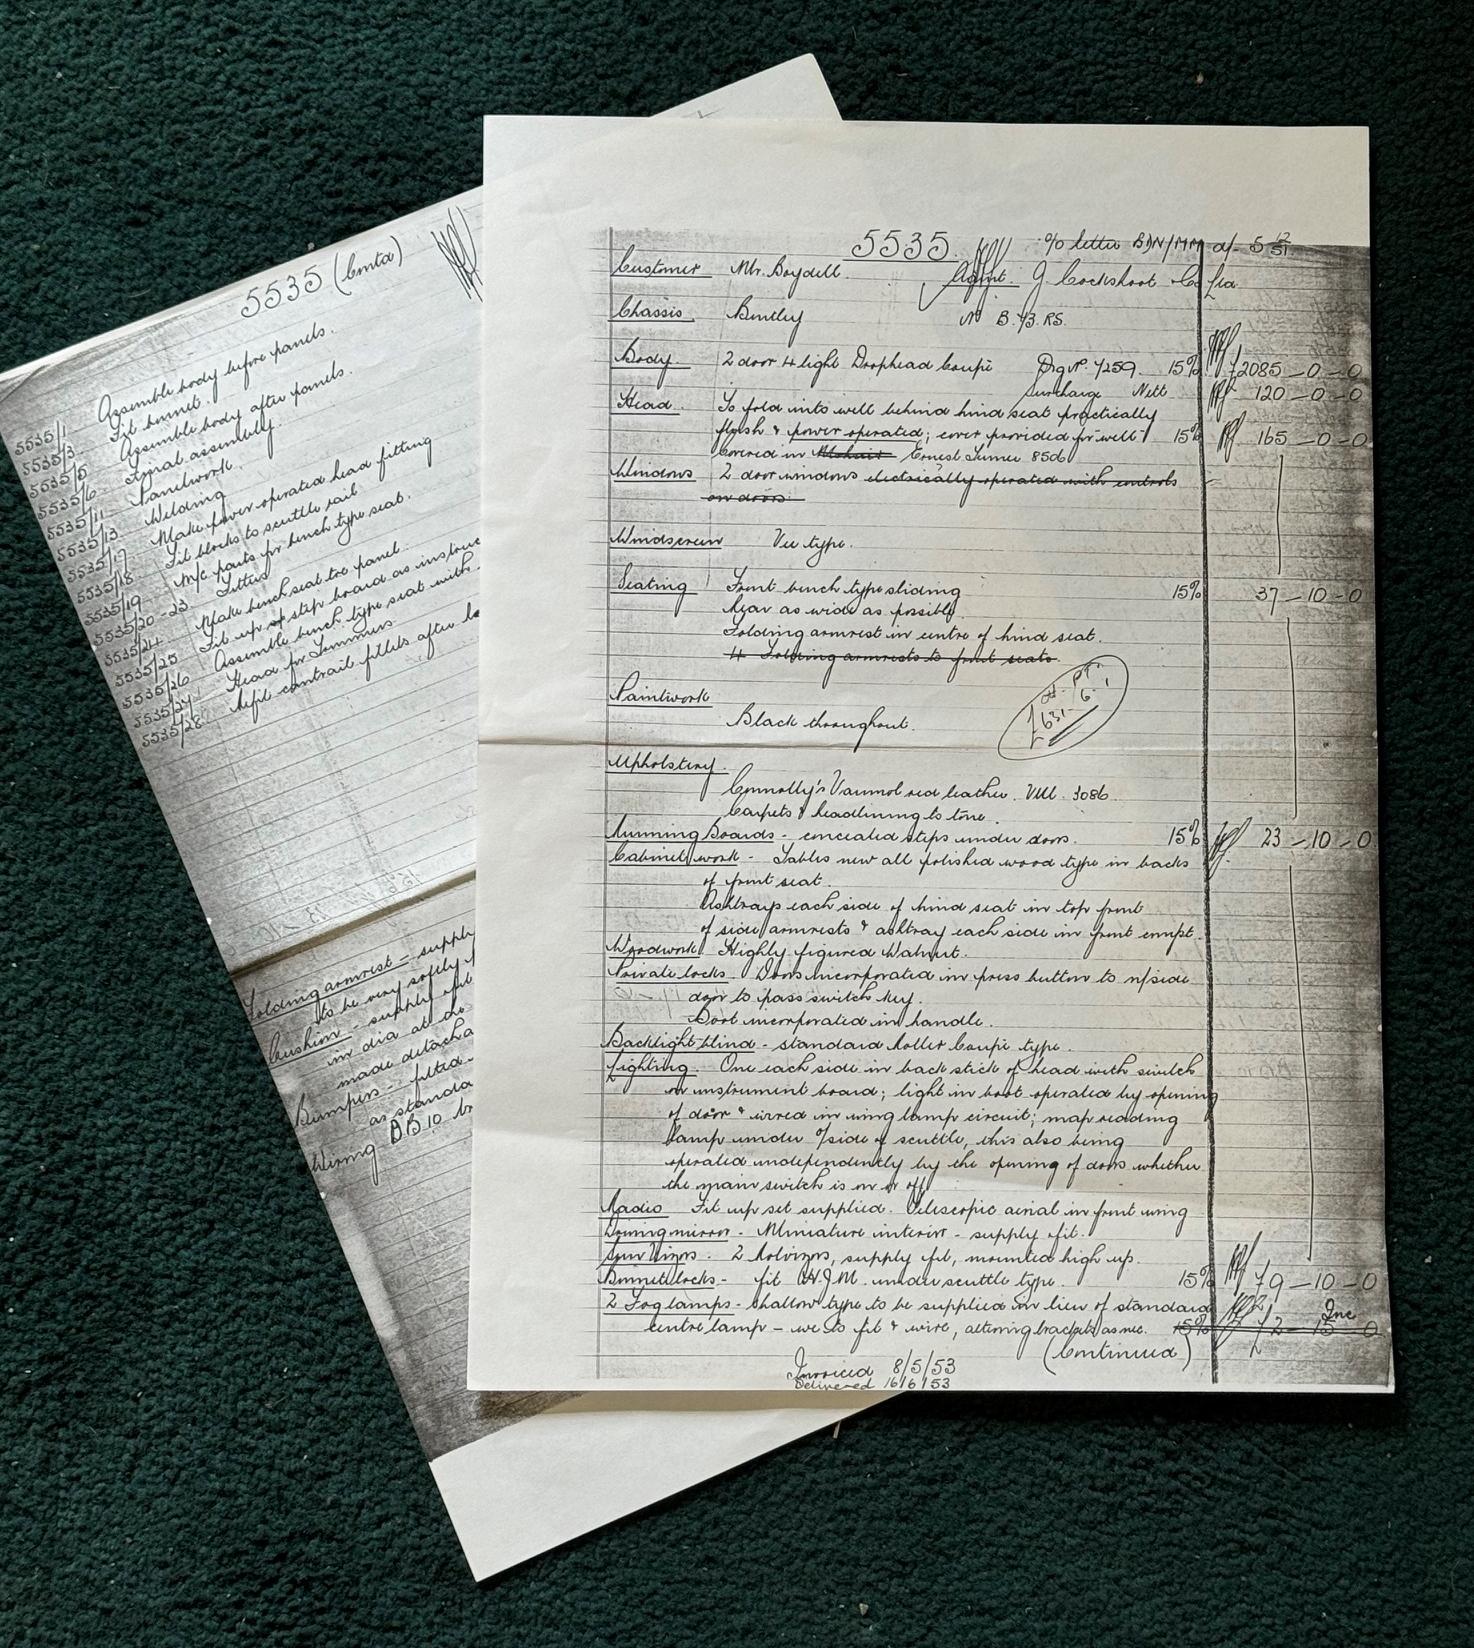 5535 (Contd)
5535/1 Assemble body before panels.
5535/3 Fit bonnet.
5535/5 Assemble body after panels.
5535/6 Final assembly.
5535/11 Panelwork.
5535/13 Welding
5535/17 Make power operated head fitting
5535/18 Fit blocks to scuttle rail
5535/19 M/c parts for bench type seat.
5535/20-23 Fitters
5535/24 Make bench seat toe panel.
5535/25 Fit up step board as instruc
5535/26 Assemble bench type seat with
5535/27 Head for Trimmers
5535/28 Refit cantrail fillets after
Folding armrest - supply
to be very softly
Cushion - supply & fit
in dia at the
made detacha
Bumpers - fitted
as standa
Wiring BB10
5535. o/o letter BDN/MM d/- 5 12/51
Customer Mr. Boydell. Agent. J Cockshoot & Co Ltd
Chassis. Bentley No B.73.RS.
Body. 2 door 4 light Drophead Coupé Drg No. 7259. 15% £2085-0-0
Surcharge Nett 120-0-0
Head. To fold into well behind hind seat practically
flush & power operated; cover provided for well 15% 165-0-0
Covered in Mohair Ernest Turner 85d
Windows 2 door windows electrically operated with controls
on doors.
Windscreen Vee type.
Seating Front bench type sliding 15% 37-10-0
Rear as wide as possible
Folding armrest in centre of hind seat.
4 Folding armrests to front seats.
£631-6-1
Paintwork
Black throughout.
Upholstery.
Connolly's Vaumol red leather. VM. 3086.
Carpets & headlining to tone.
Running Boards - concealed steps under doors. 15% 23-10-0
Cabinet work - Tables new all polished wood type in backs
of front seat.
Ashtrays each side of hind seat in top front
of side armrests & ashtray each side in front compt.
Woodwork. Highly figured Walnut.
Private locks. Doors incorporated in press button to n/side
door to pass switch key.
Boot incorporated in handle.
Backlight blind - standard roller Coupé type.
Lighting. One each side in back stick of head with switch
on instrument board; light in boot operated by opening
of door & wired in wing lamp circuit; map reading
lamp under o/side of scuttle, this also being
operated independently by the opening of doors whether
the main switch is on or off.
Radio Fit up set supplied. Telescopic aerial in front wing
Driving mirror - Miniature interior - supply & fit.
Sun Vizors. 2 Rolvizors, supply & fit, mounted high up.
Bonnet locks - fit H.J.M. under scuttle type. 15% 79-10-0
2 Fog lamps - shallow type to be supplied in lieu of standard Inc
centre lamp - we to fit & wire, altering brackets as nec. 15% £2-15-0
(Continued)
Invoiced 8/5/53
Delivered 16/6/53